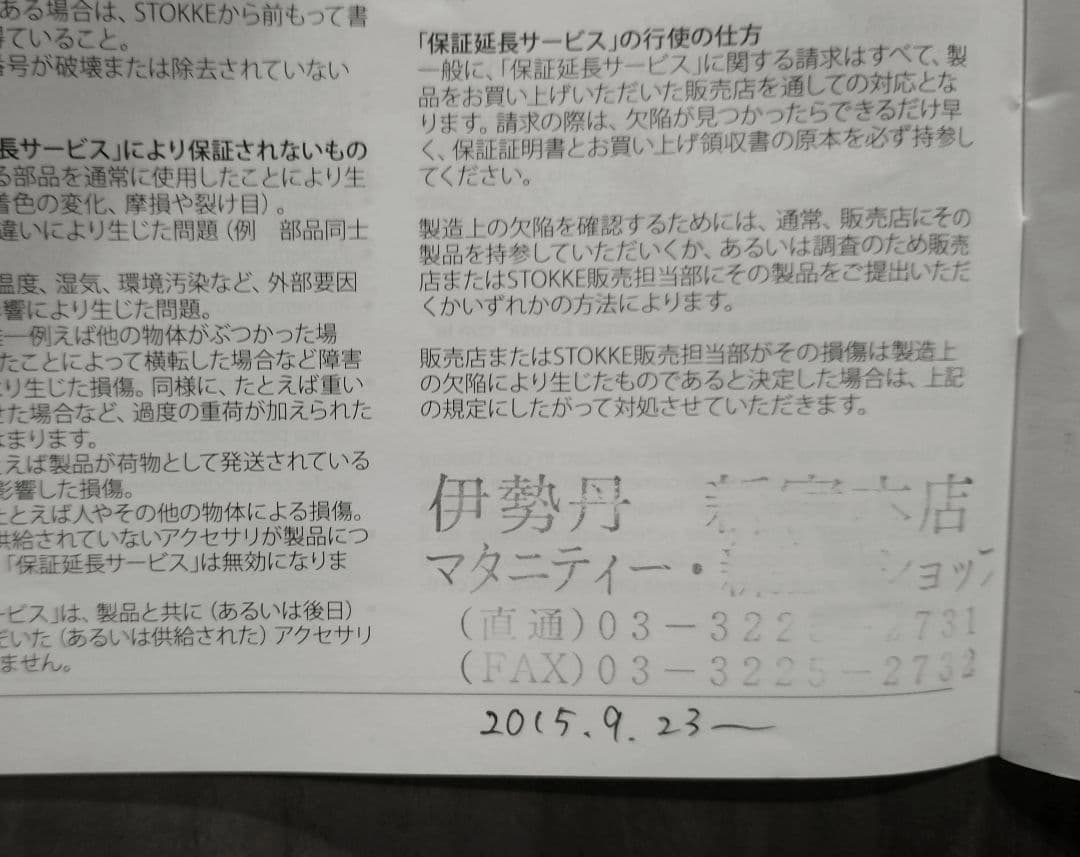 ある場合は、STOKKEから前もって書
ていること。
号が破壊または除去されていない
長サービス」により保証されないもの
る部品を通常に使用したことにより生
着色の変化、摩損や裂け目）。
違いにより生じた問題（例　部品同士
温度、湿気、環境汚染など、外部要因
影響により生じた問題。
一例えば他の物体がぶつかった場
たことによって横転した場合など障害
より生じた損傷。同様に、たとえば重い
せた場合など、過度の重荷が加えられた
はまります。
とえば製品が荷物として発送されている
影響した損傷。
たとえば人やその他の物体による損傷。
供給されていないアクセサリが製品につ
「保証延長サービス」は無効になりま
ービス」は、製品と共に（あるいは後日）
だいた（あるいは供給された）アクセサリ
ません。
「保証延長サービス」の行使の仕方
一般に、「保証延長サービス」に関する請求はすべて、製
品をお買い上げいただいた販売店を通しての対応とな
ります。請求の際は、欠陥が見つかったらできるだけ早
く、保証証明書とお買い上げ領収書の原本を必ず持参し
てください。
製造上の欠陥を確認するためには、通常、販売店にその
製品を持参していただいくか、あるいは調査のため販売
店またはSTOKKE販売担当部にその製品をご提出いただ
くかいずれかの方法によります。
販売店またはSTOKKE販売担当部がその損傷は製造上
の欠陥により生じたものであると決定した場合は、上記
の規定にしたがって対処させていただきます。
伊勢丹 店
マタニティー・ ショップ
（直通）03－322 2731
（FAX）03－3225－2732
2015.9.23—